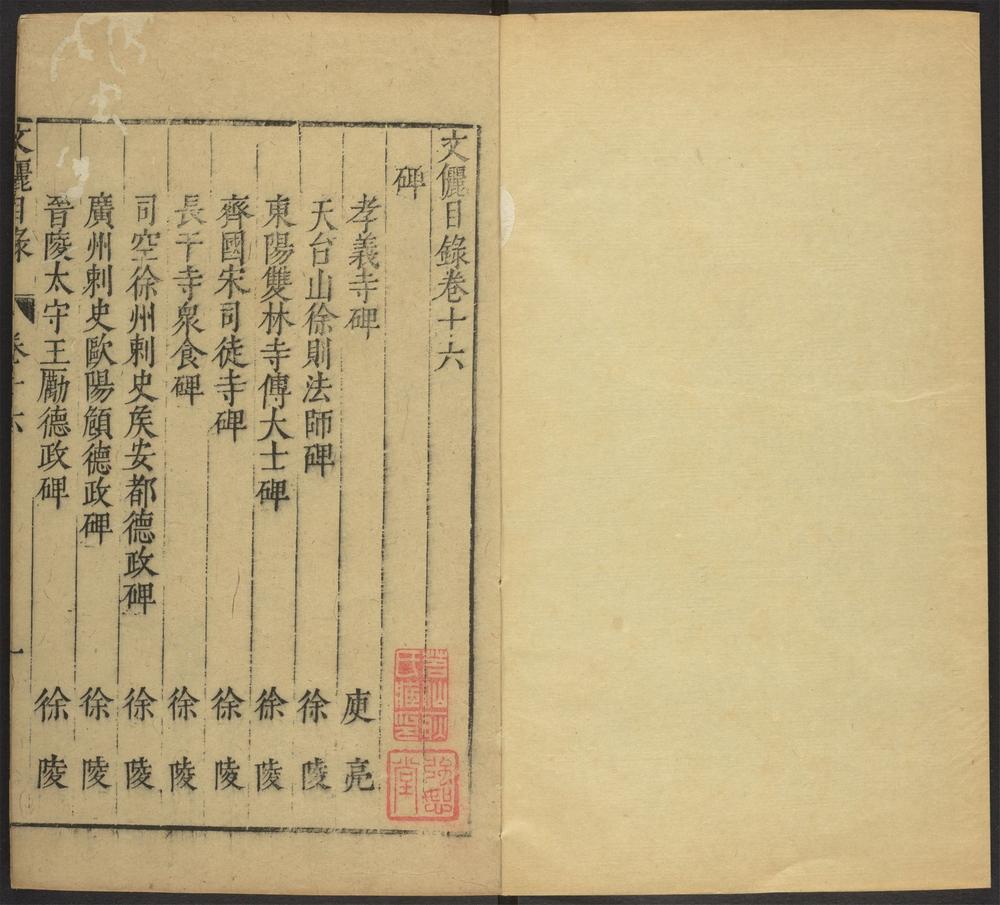 文儷目錄卷十六
碑
孝義寺碑 庾亮
天台山徐則法師碑 徐陵
東陽雙林寺傅大士碑 徐陵
齊國宋司徒寺碑 徐陵
長干寺衆食碑 徐陵
司空徐州刺史矦安都德政碑 徐陵
廣州刺史歐陽頠德政碑 徐陵
晉陵太守王勵德政碑 徐陵
文儷目錄 卷十六 一